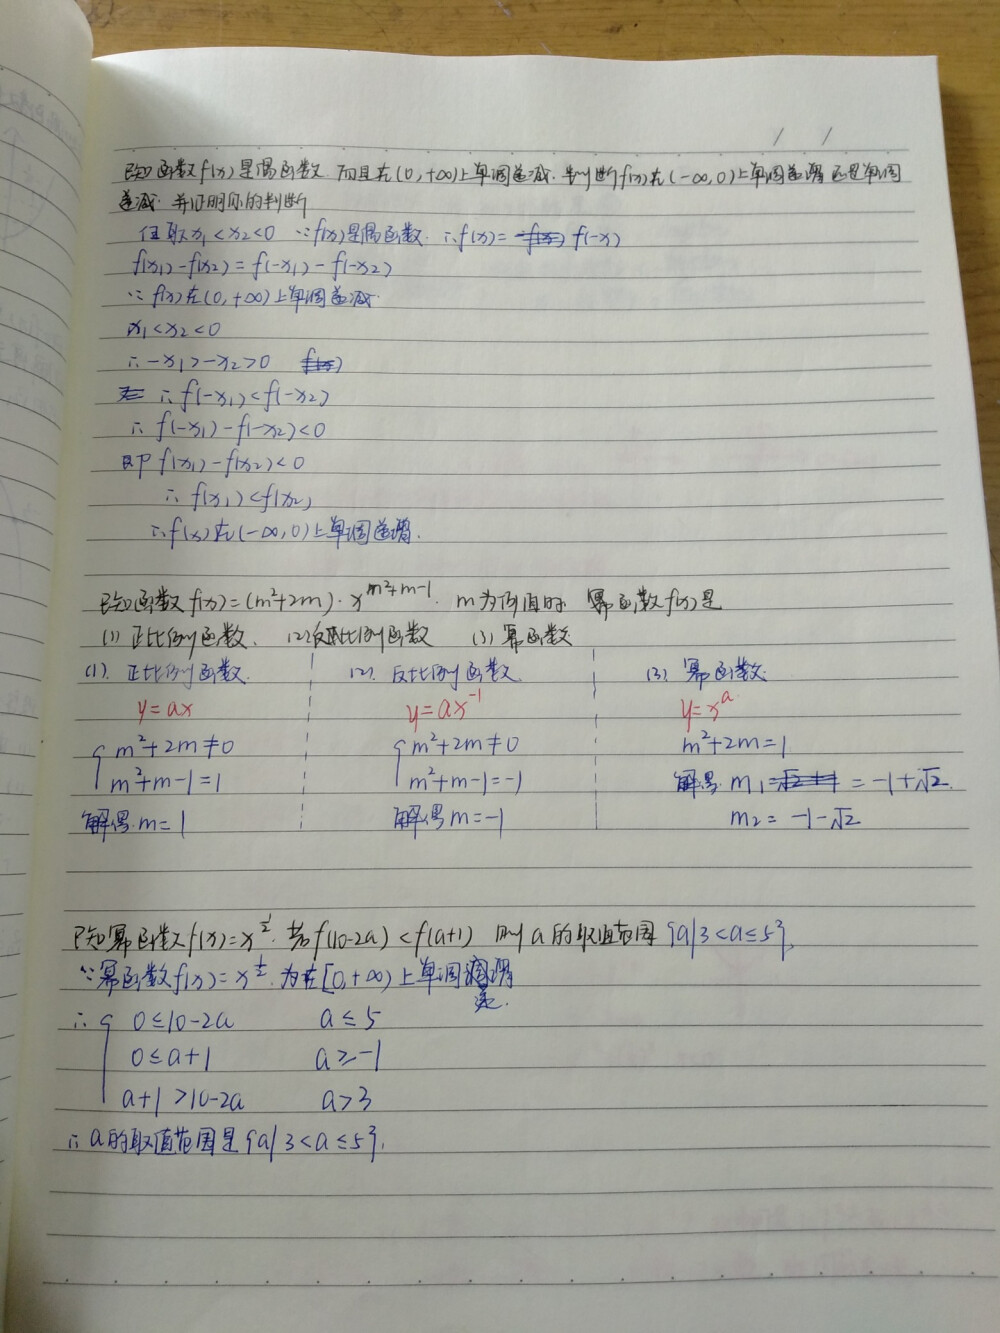 / /
已知函数f(x)是偶函数 而且在(0,+∞)上单调递减.判断f(x)在(-∞,0)上单调递增还是单调
递减.并证明你的判断
任取x₁<x₂<0 ∵f(x)是偶函数.∴f(x)= f(-x)
f(x₁)-f(x₂)=f(-x₁)-f(-x₂)
∵f(x)在(0,+∞)上单调递减.
x₁<x₂<0
∴-x₁>-x₂>0
∴f(-x₁)<f(-x₂)
∴f(-x₁)-f(-x₂)<0
即f(x₁)-f(x₂)<0
∴f(x₁)<f(x₂)
∴f(x)在(-∞,0)上单调递增.
已知函数f(x)=(m²+2m)·x^{m²+m-1}. m为何值时 幂函数f(x)是
(1)正比例函数、(2)反比例函数 (3)幂函数
(1).正比例函数. (2).反比例函数 (3).幂函数.
y=ax y=ax⁻¹ y=x^a
{m²+2m≠0 {m²+2m≠0 m²+2m=1
m²+m-1=1 m²+m-1=-1 解得.m₁ =-1+√2.
解得.m=1 解得m=-1 m₂=-1-√2
已知幂函数f(x)=x^{1/2}.若f(10-2a)<f(a+1) 则a的取值范围{a|3<a≤5}.
∵幂函数f(x)=x^{1/2}.为在[0,+∞)上单调递增.
∴{0≤10-2a a≤5
0≤a+1 a≥-1
a+1>10-2a a>3
∴a的取值范围是{a|3<a≤5}.